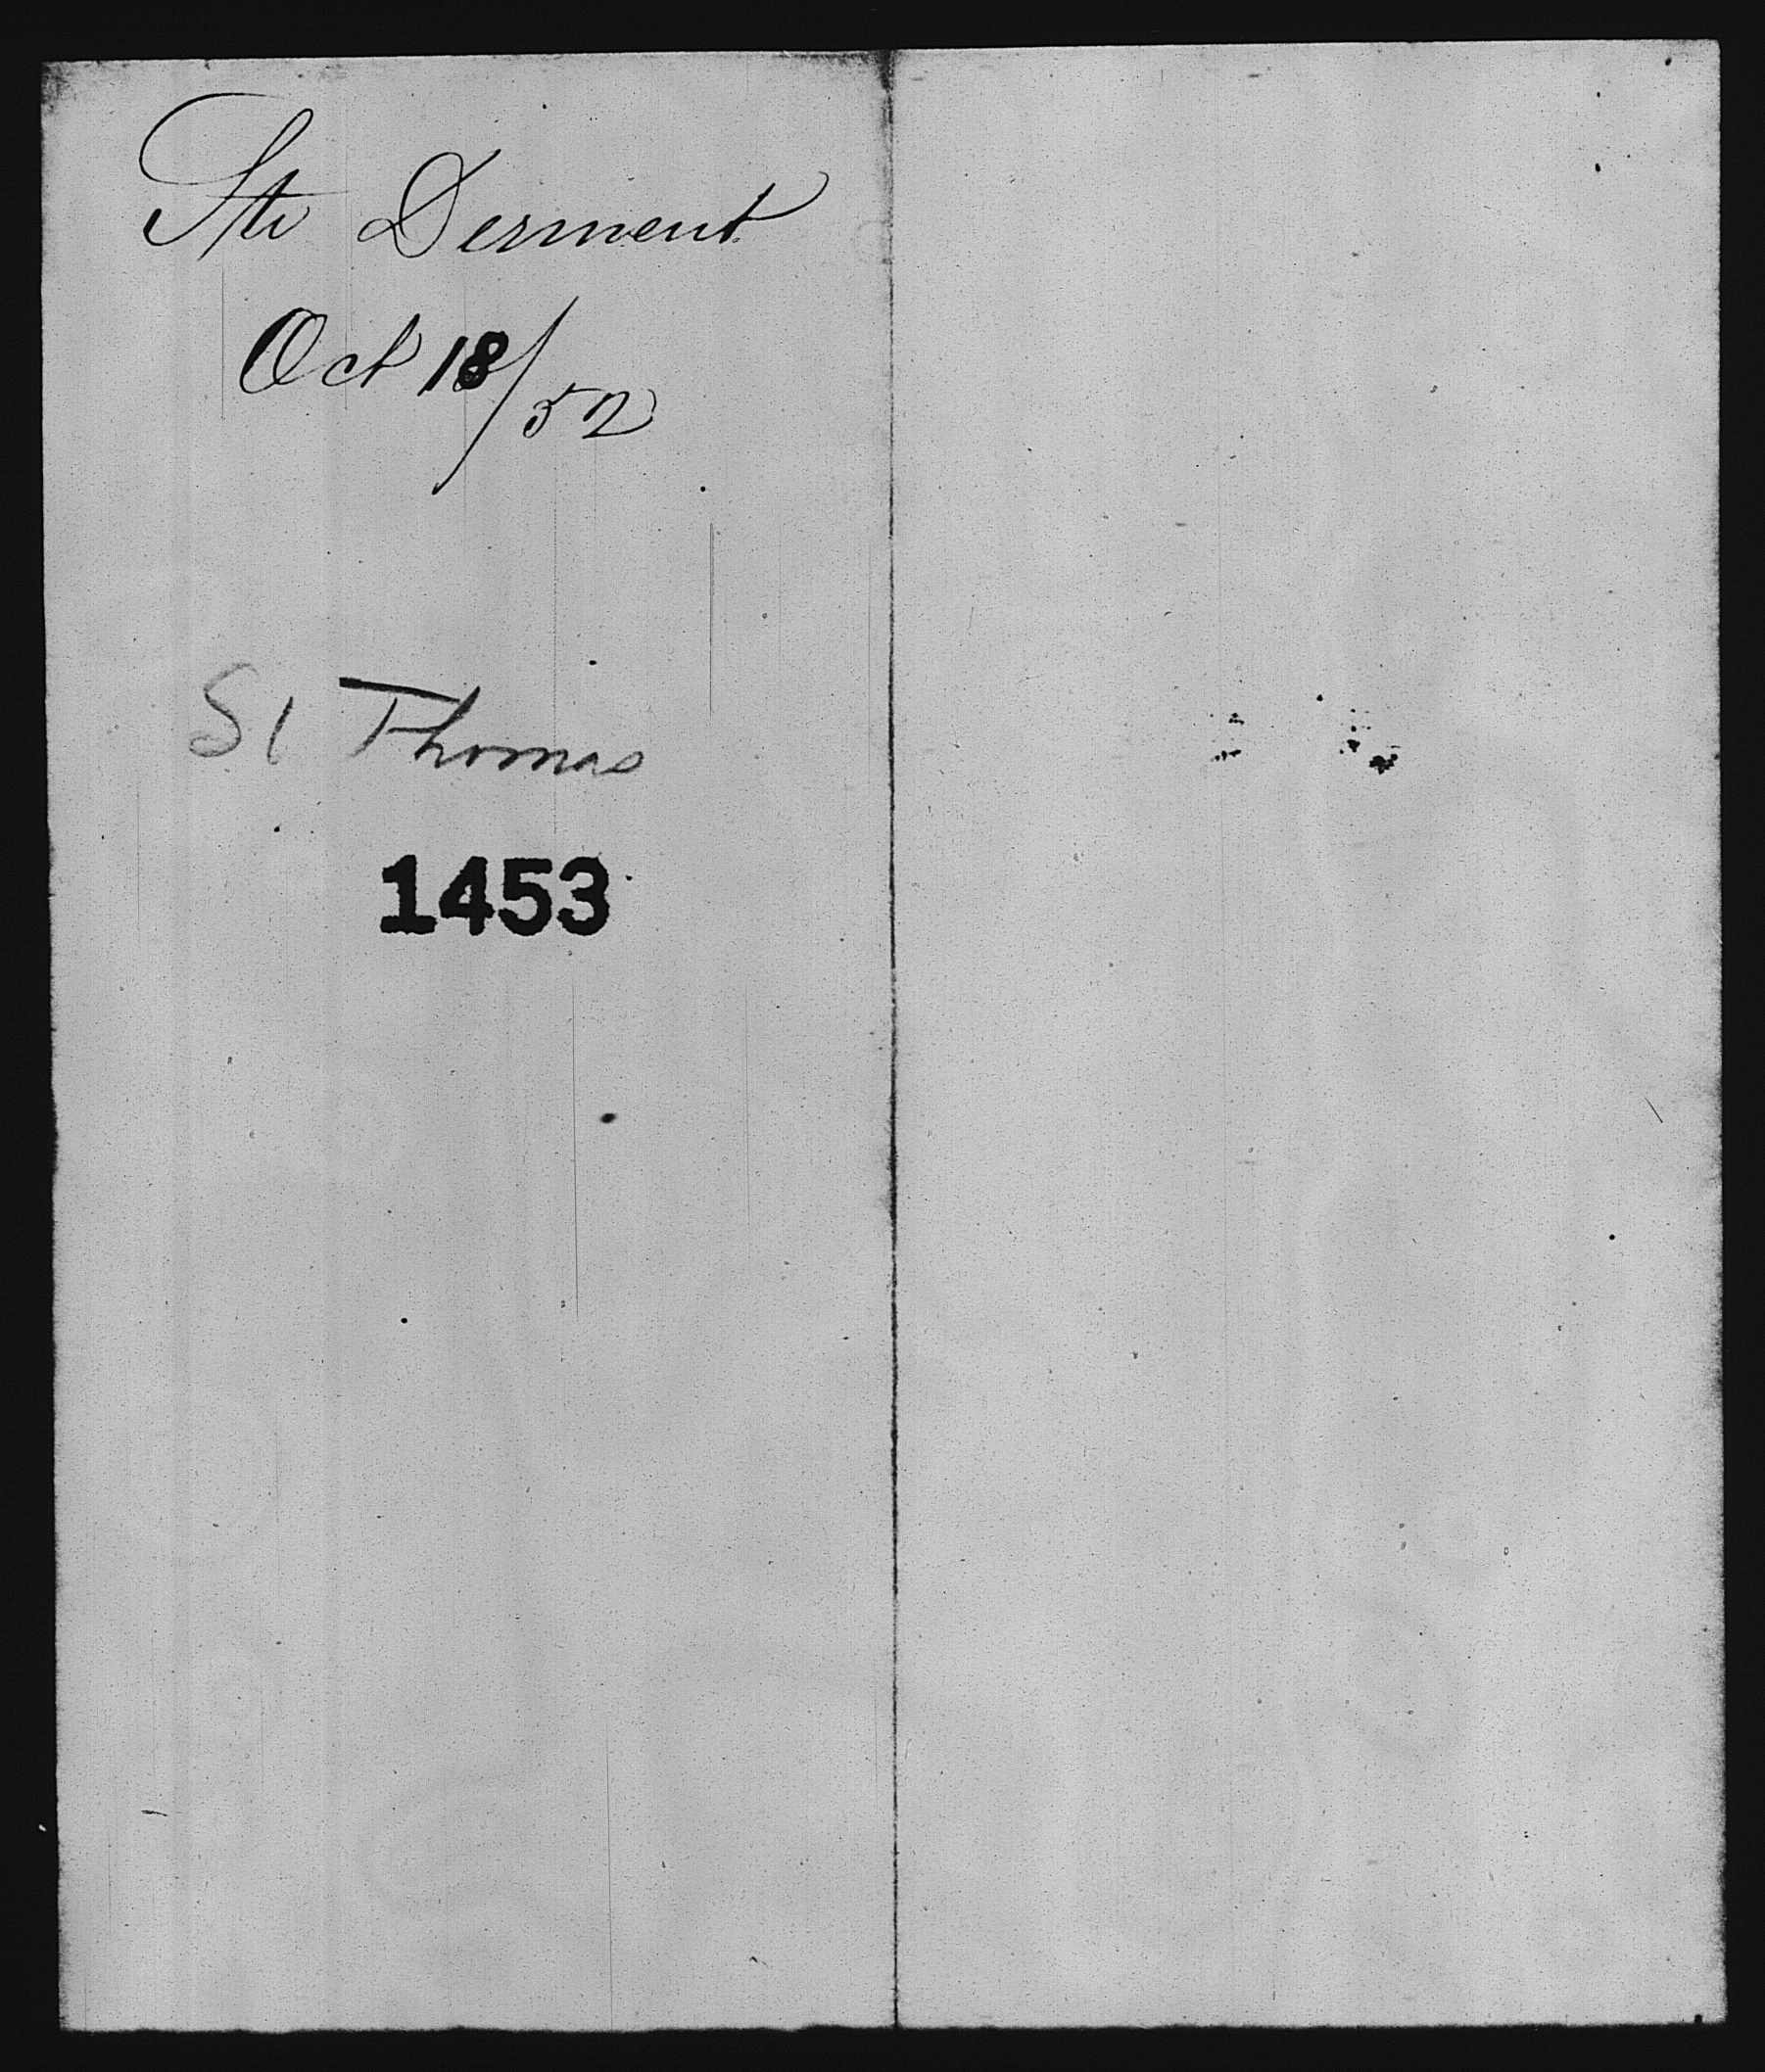 Str Derwent
Oct 18/52
St Thomas
1453